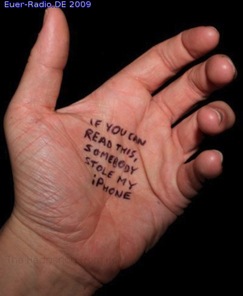 Euer-Radio.DE 2009
IF YOU CAN
READ THIS,
SOMEBODY
STOLE MY
iPHONE